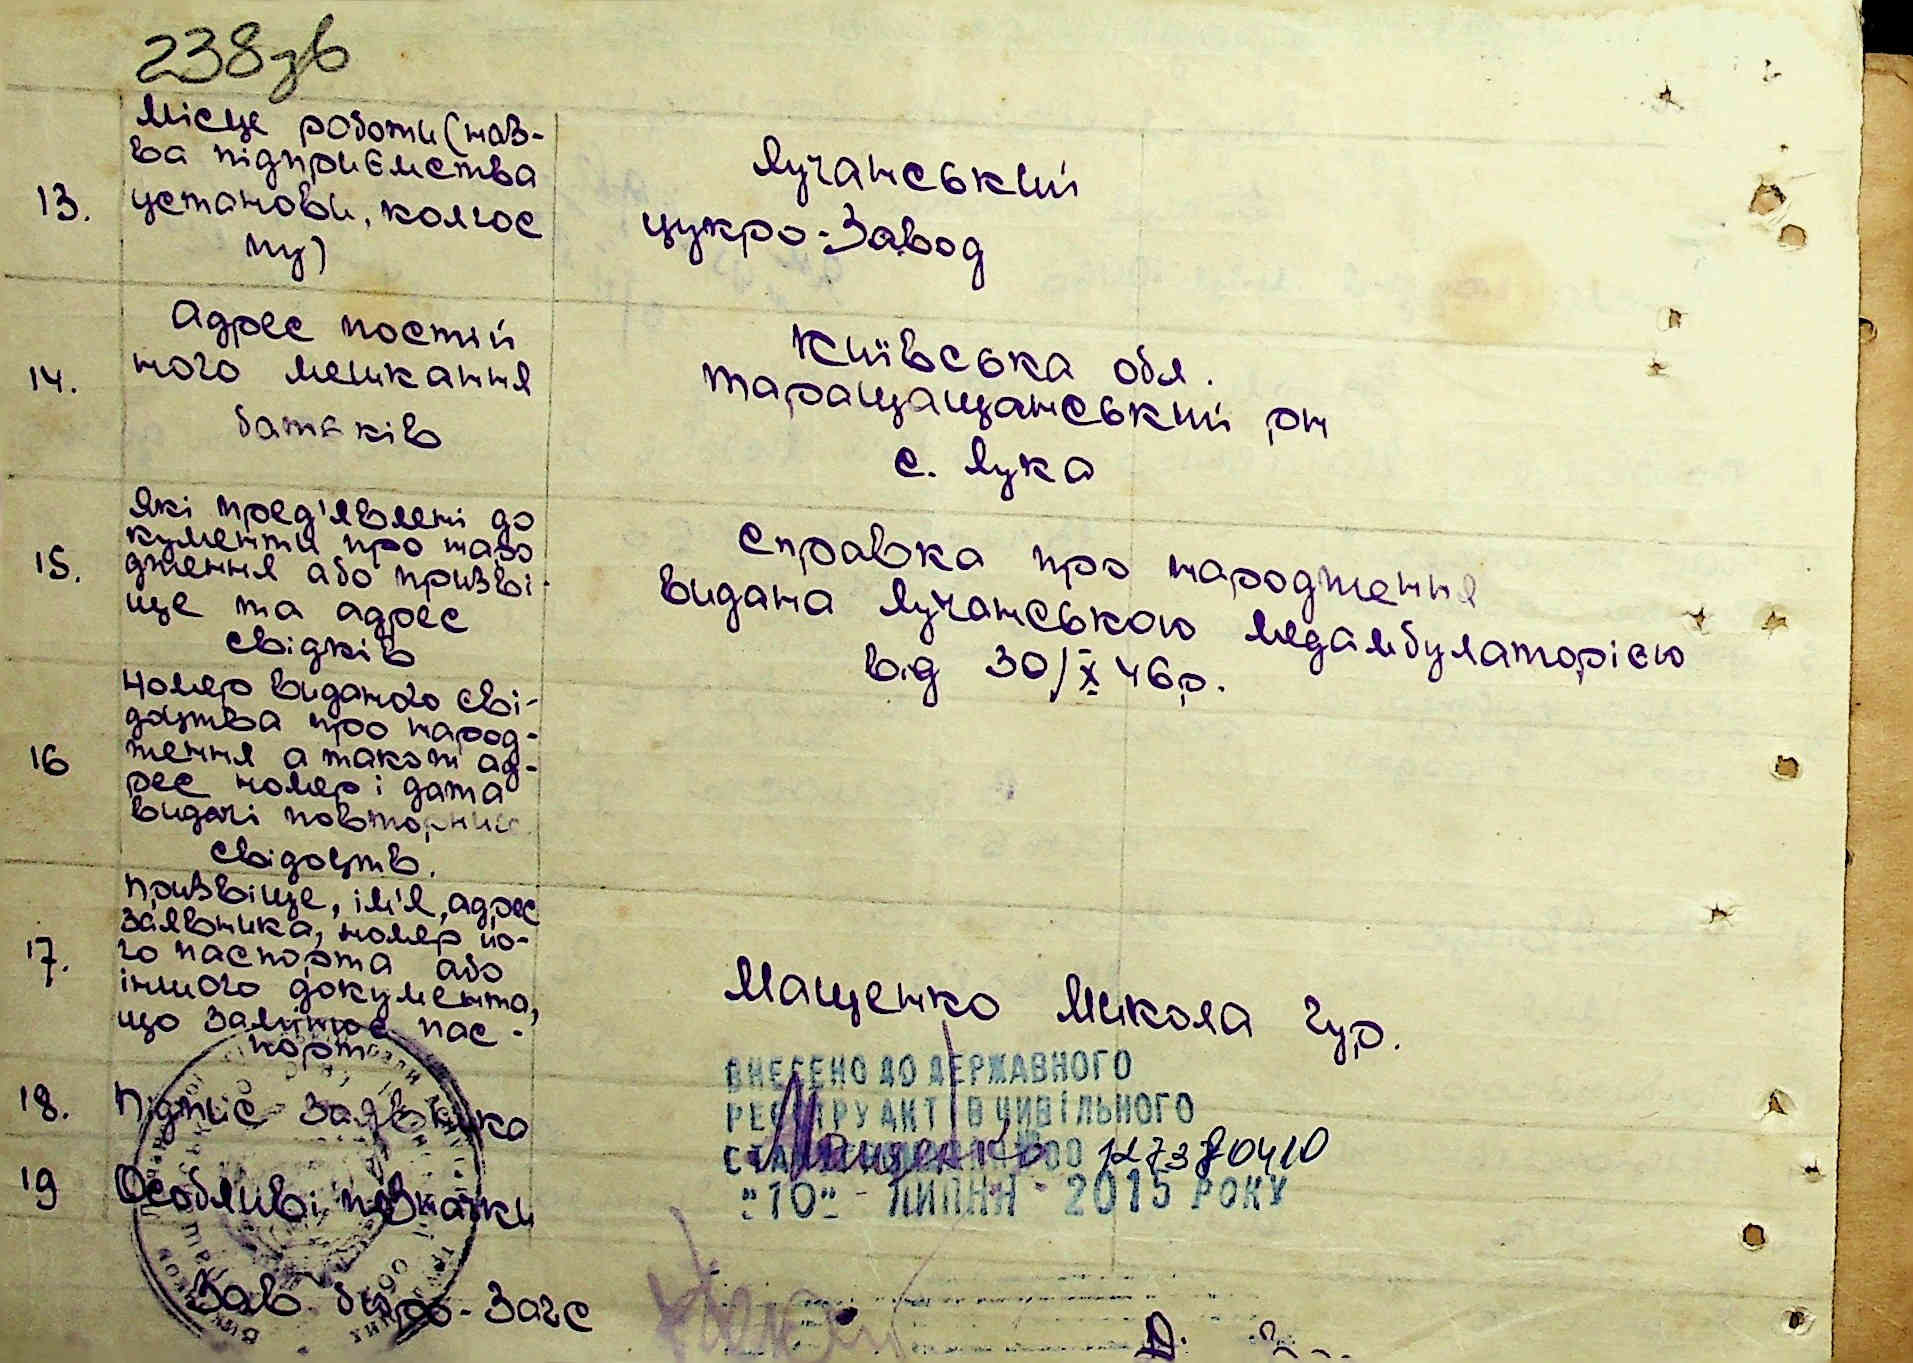 238зв
13.
Місце роботи (наз-
ва підприємства
установи, колгос
пу)
Лучанський
цукро-завод
14.
Адрес постій
ного мешкання
батьків
Київська обл.
Таращащанський рн
с. Лука
15.
Які пред'явлені до
кументи про наро
дження або призві-
ще та адрес
свідків
Справка про народження
видана Лучанською медамбулаторією
від 30/X 46р.
16
Номер виданого сві-
доцтва про народ-
ження а також ад-
рес номер і дата
видачі повторних
свідоцтв.
17.
Призвіще, ім'я, адрес
заявника, номер йо-
го паспорта або
іншого документа,
що замінює пас-
порт
Мащенко Микола Гур.
18.
Підпис заявника
Мащенко
ВНЕСЕНО ДО ДЕРЖАВНОГО
РЕЄСТРУ АКТІВ ЦИВІЛЬНОГО
"10" - ЛИПНЯ - 2015 РОКУ
19
Особливі познаки
Зав. бюро-Загс